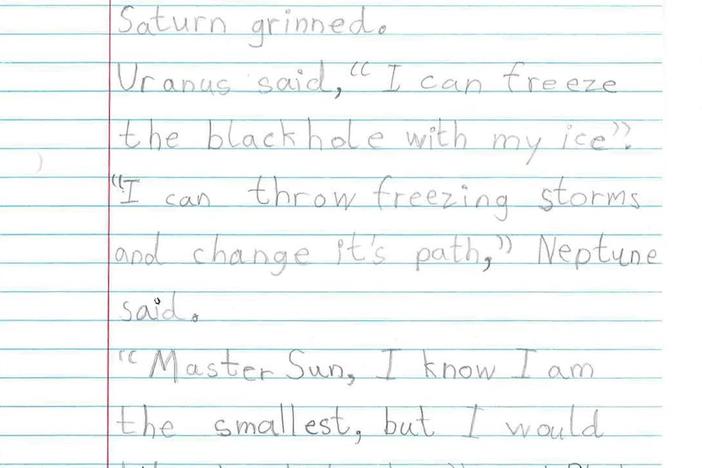 Saturn grinned.
Uranus said, "I can freeze
the blackhole with my ice".
"I can throw freezing storms
and change it's path," Neptune
said.
"Master Sun, I know I am
the smallest, but I would